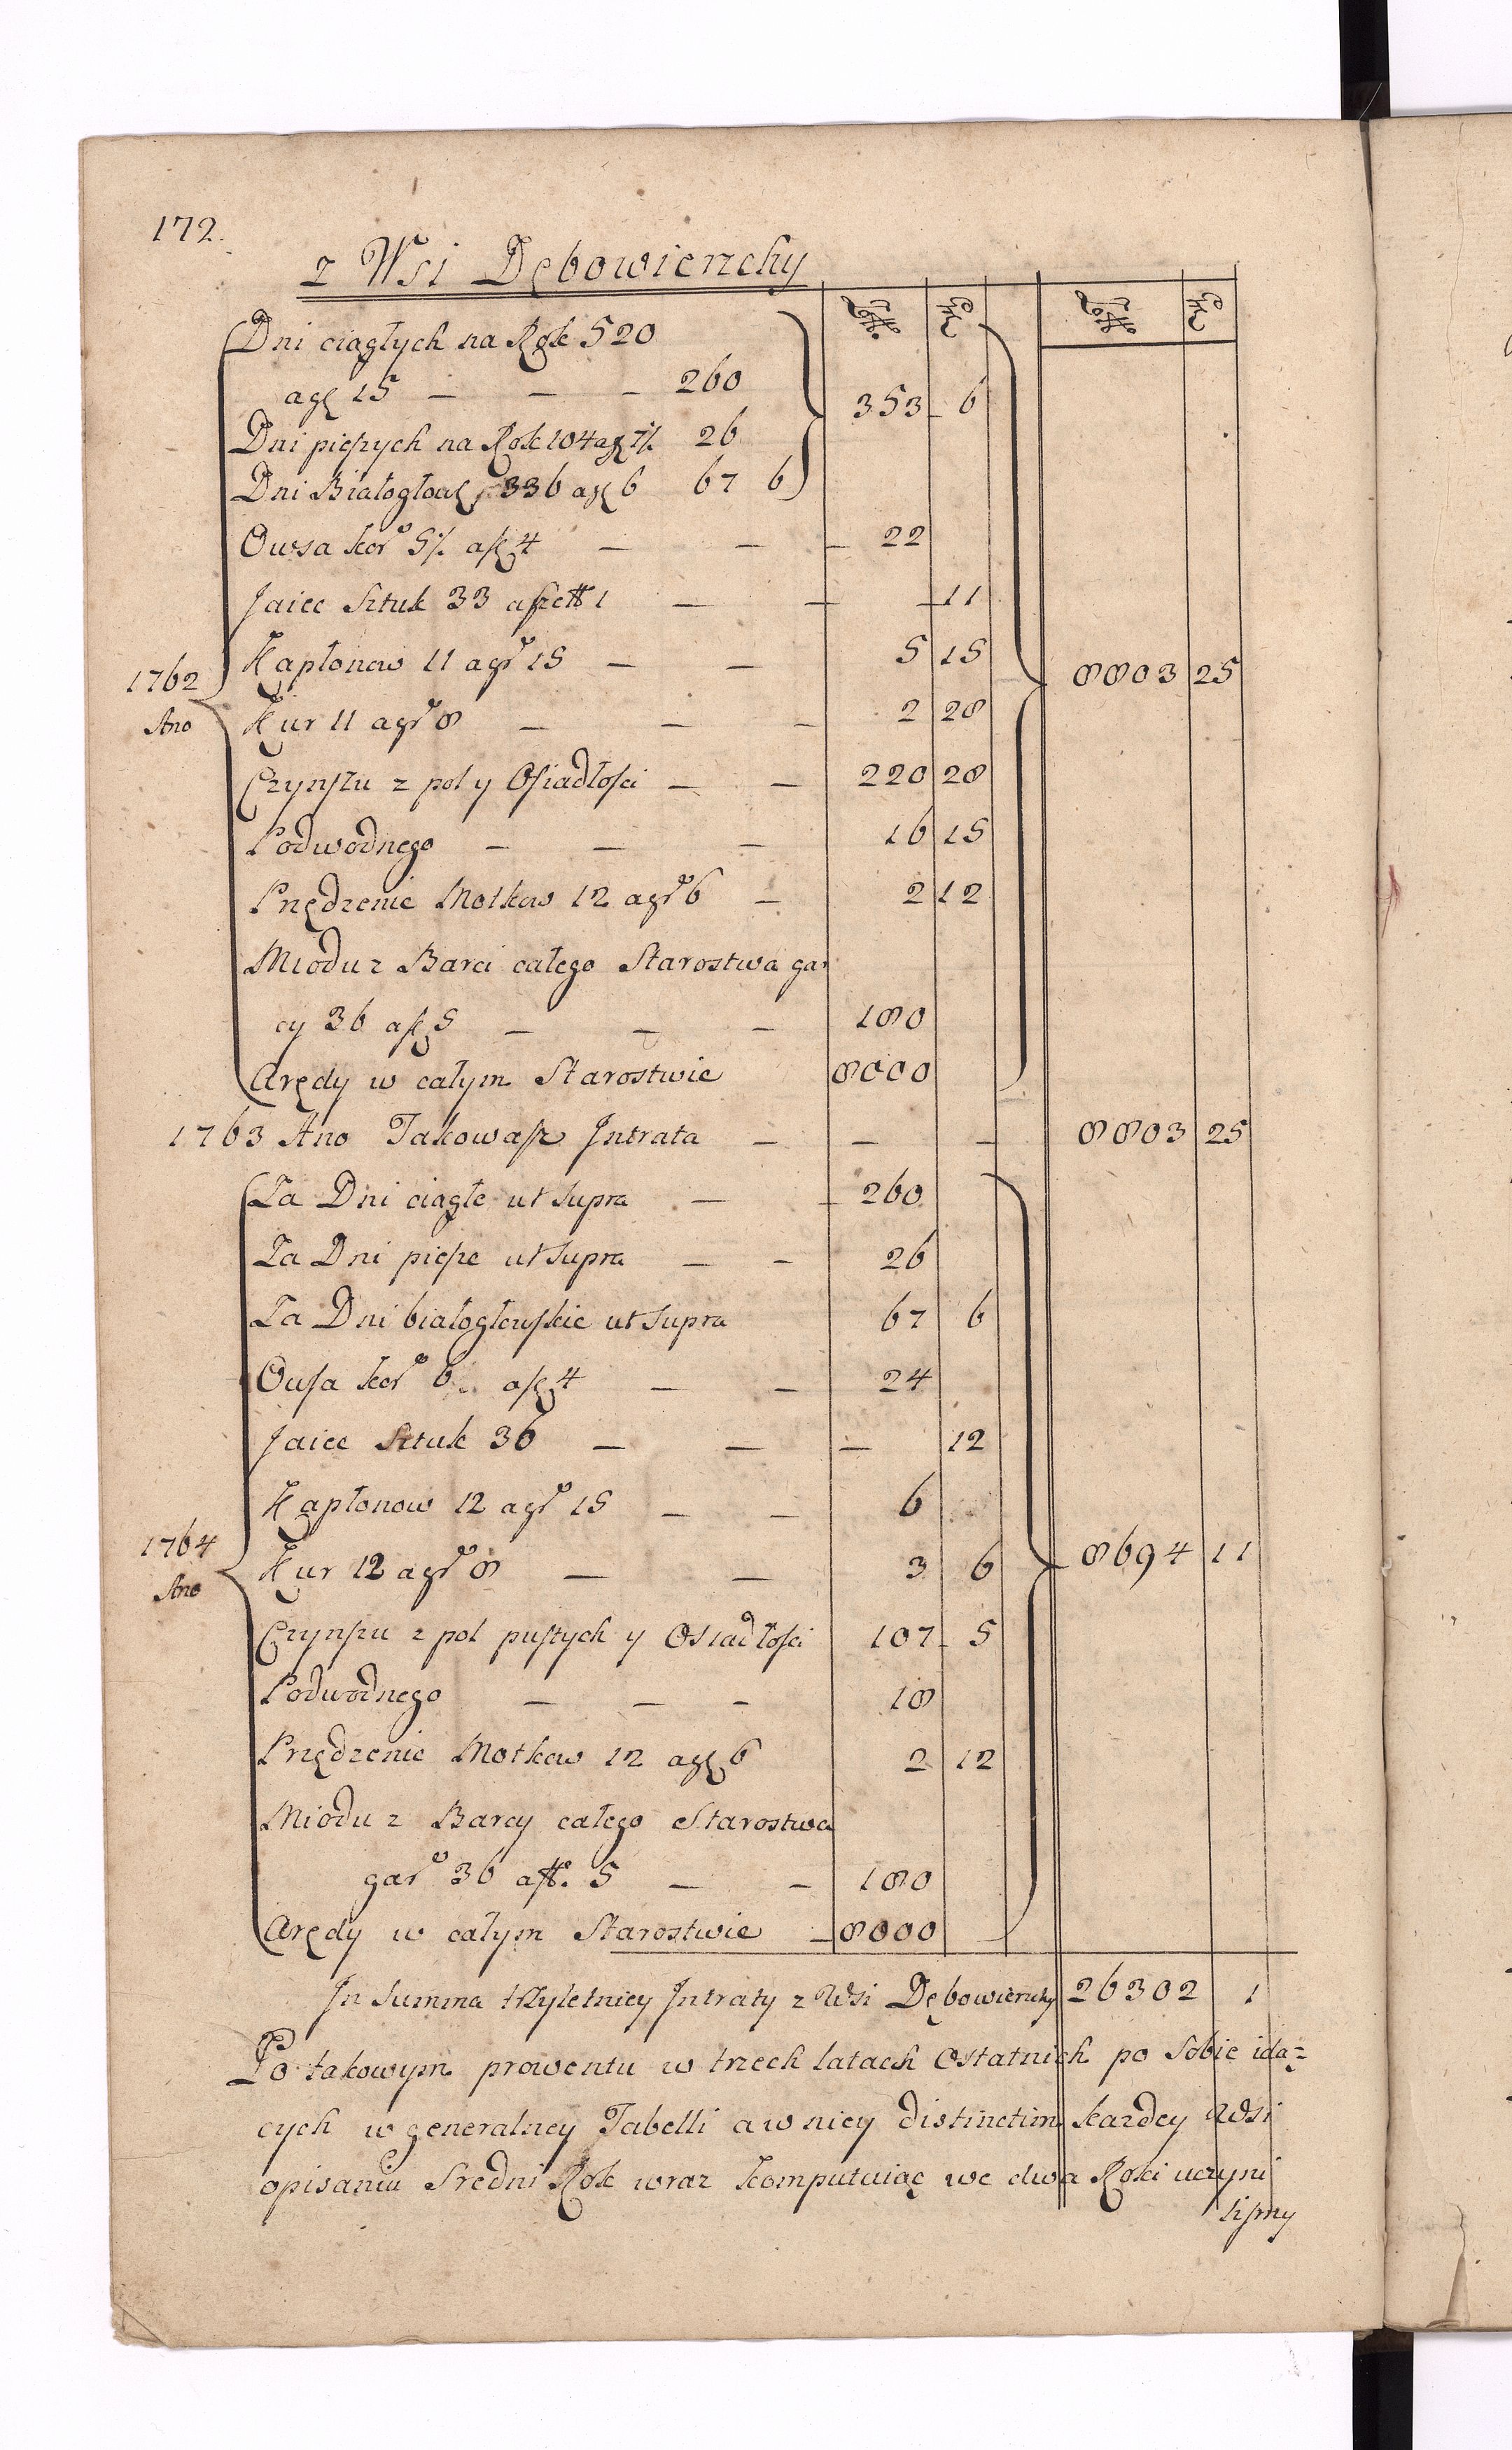 172.
z Wsi Dębowierzchy
Dni ciągłych na Rok 520
agr 15 — — — 260
353 6
Dni pieszych na Rok 104 agr 7½ 26
Dni Białogłow: 336 agr 6 67 6
Owsa kor 5½ a 4 — — — 22
Jaiec Sztuk 33 a 1 — — — 11
Kapłonow 11 agr 15 — — 5 15
1762
Ano
8803 25
Kur 11 agr 8 — — — 2 28
Czynszu z pol y Osiadłości — — 220 28
Podwodnego — — — 16 15
Przędzenie Motkow 12 agr 6 — 2 12
Miodu z Barci całego Starostwa gar
cy 36 a 5 — — — 180
Arędy w całym Starostwie 8000
1763 Ano Takowasz Jntrata — — — 8803 25
Za Dni ciągłe ut supra — — 260
Za Dni piesze ut supra — — 26
Za Dni białogłowskie ut supra 67 6
Owsa kor 6 a 4 — — 24
Jaiec Sztuk 36 — — — 12
Kapłonow 12 agr 15 — — 6
1764
Ano
8694 11
Kur 12 agr 8 — — 3 6
Czynszu z pol pustych y Osiadłości 107 5
Podwodnego — — — 18
Przędzenie Motkow 12 agr 6 2 12
Miodu z Barcy całego Starostwa
gar 36 a 5 — — 180
Arędy w całym Starostwie — 8000
Jn Summa trzyletniey Jntraty z Wsi Dębowierzchy 26302 1
Po takowym prowentu w trzech latach ostatnich po sobie idą=
cych w generalney Tabelli a w niey distinctim kazdey Wsi
opisaniu Sredni Rok wraz komputuiąc we dwa Roki uczyni
lismy